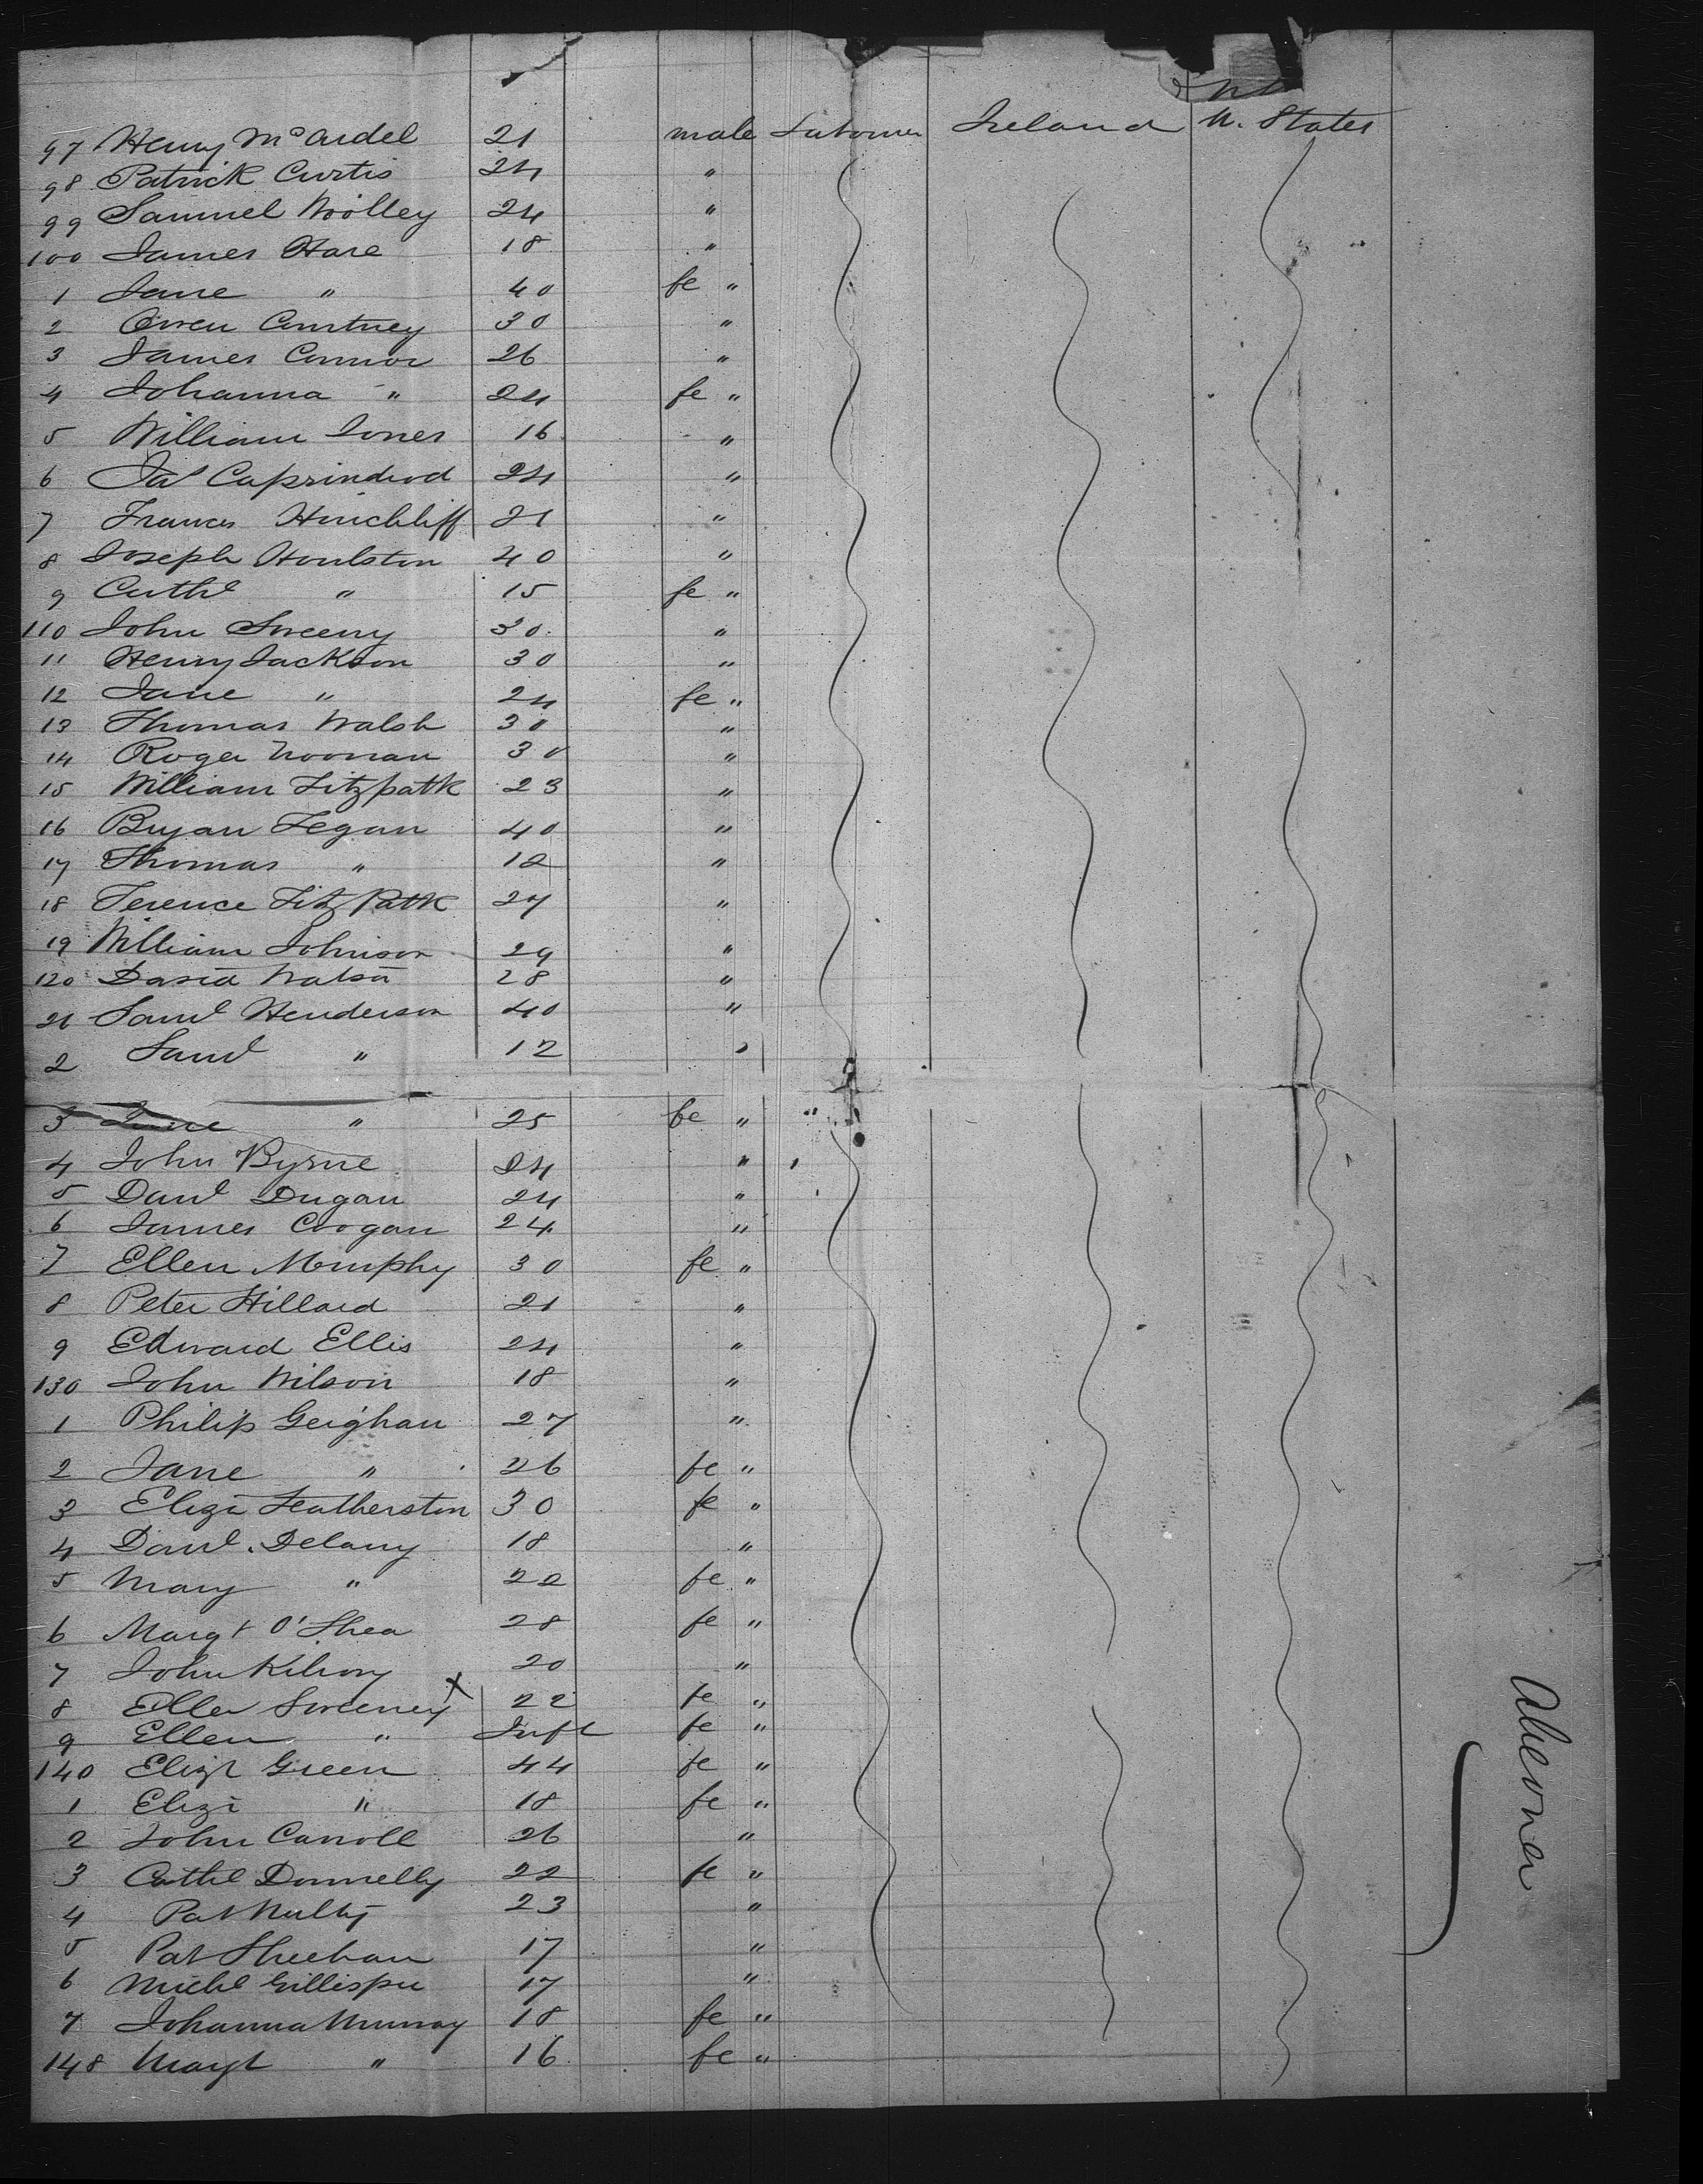 97 Henry McArdel 21 male Labourer Ireland U. States
98 Patrick Curtis 24 "
99 Samuel Woolley 24 "
100 James Hare 18 "
1 Jane " 40 fe "
2 Owen Courtney 30 "
3 James Connor 26 "
4 Johanna " 24 fe "
5 William Jones 16 "
6 Jas 24 "
7 Frances Hinchliff 21 "
8 Joseph Houlston 40 "
9 Cathe " 15 fe "
110 John Sweeny 30 "
11 Henry Jackson 30 "
12 Jane " 24 fe "
13 Thomas Walsh 30 "
14 Roger Noonan 30 "
15 William Fitzpatk 23 "
16 Bryan Fegan 40 "
17 Thomas " 12 "
18 Terence Fitz Patk 27 "
19 William Johnson 29 "
120 David Watson 28 "
21 Saml Henderson 40 "
2 Saml " 12 "
3 Jane " 25 fe " "
4 John Byrne 24 "
5 Danl Dugan 24 "
6 James Coogan 24 "
7 Ellen Murphy 30 fe "
8 Peter Hillard 21 "
9 Edward Ellis 24 "
130 John Wilson 18 "
1 Philip Geighan 27 "
2 Jane " 26 fe "
3 Eliza Featherston 30 fe "
4 Danl Delany 18 "
5 Mary " 22 fe "
6 Margt O'Shea 28 fe "
7 John Kilroy 20 "
8 Ellen Sweeney x 22 fe "
9 Ellen " Inft fe "
140 Elizt Green 44 fe "
1 Eliza " 18 fe "
2 John Carroll 26 "
3 Cathe Donnelly 22 fe "
4 Pat Nulty 23 "
5 Pat Sheehan 17 "
6 Michl Gillispie 17 "
7 Johanna Murray 18 fe "
148 Margt " 16 fe "